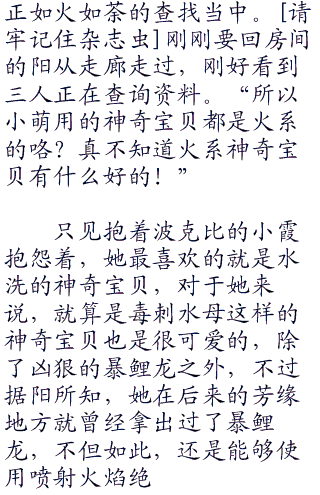 正如火如荼的查找当中。[请
牢记住杂志虫]刚刚要回房间
的阳从走廊走过，刚好看到
三人正在查询资料。“所以
小萌用的神奇宝贝都是火系
的咯？真不知道火系神奇宝
贝有什么好的！”
只见抱着波克比的小霞
抱怨着，她最喜欢的就是水
洗的神奇宝贝，对于她来
说，就算是毒刺水母这样的
神奇宝贝也是很可爱的，除
了凶狠的暴鲤龙之外，不过
据阳所知，她在后来的芳缘
地方就曾经拿出过了暴鲤
龙，不但如此，还是能够使
用喷射火焰绝